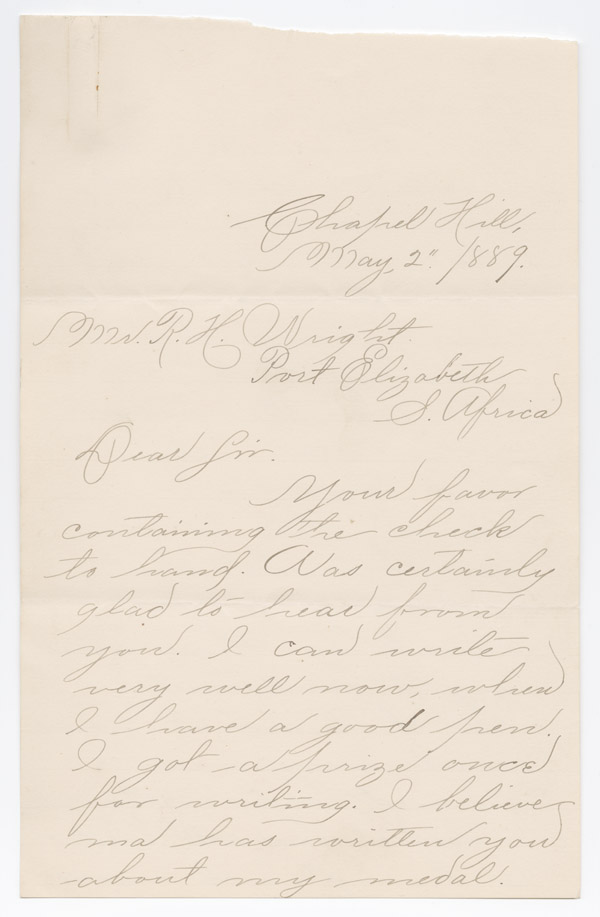 Chapel Hill,
May 2" /889.
Mr. R. H. Wright.
Port Elizabeth
S. Africa
Dear Sir.
Your favor
containing the check
to hand. Was certainly
glad to hear from
you. I can write
very well now, when
I have a good pen.
I got a prize once
for writing. I believe
ma has written you
about my medal.